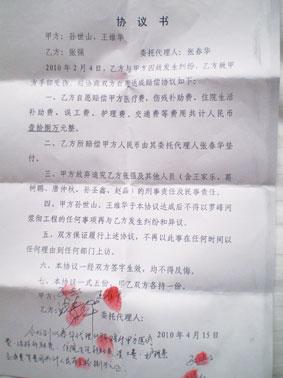 协 议 书
甲方：孙世山、王维华
乙方：张强 委托代理人：张春华
2010年2月4日，乙方与甲方因故发生纠纷，乙方致甲
方多部受伤，经协商双方自愿达成赔偿协议如下：
一、乙方自愿赔偿甲方医疗费、伤残补助费、住院生活
补助费、误工费、护理费、交通费等费用共计人民币
壹拾捌万元整。
二、乙方所赔偿甲方人民币由其委托代理人张春华垫
付。
三、甲方放弃追究乙方张强及其他人员（含王家乐、葛
树鹏、唐仲秋、孙圣鑫、赵磊）的刑事责任及民事责任。
四、甲方孙世山、王维华于本协议达成后不得以罗峰河
浆砌工程的任何事项再与乙方发生纠纷和异议。
五、双方保证履行上述协议，不再以此事在任何时间以
任何理由到任何部门上访。
六、本协议一经双方签字生效，均不得反悔。
七、本协议一式三份，甲乙双方各持一份。
甲方：
乙方：
2010年4月15日